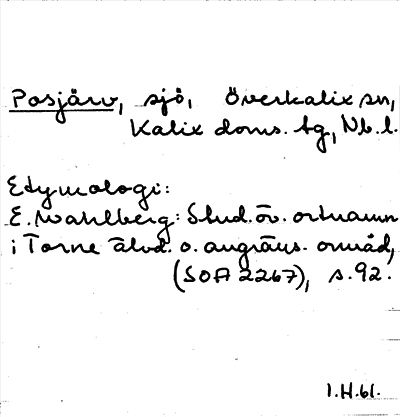 Posjärv, sjö, Överkalix sn,
Kalix doms. tg, Nb. l.
Etymologi:
E. Wahlberg: Stud. öv. ortnamn
i Torne älvd. o. angräns. områd,
(SOA 2267), s. 92.
1.H.61.